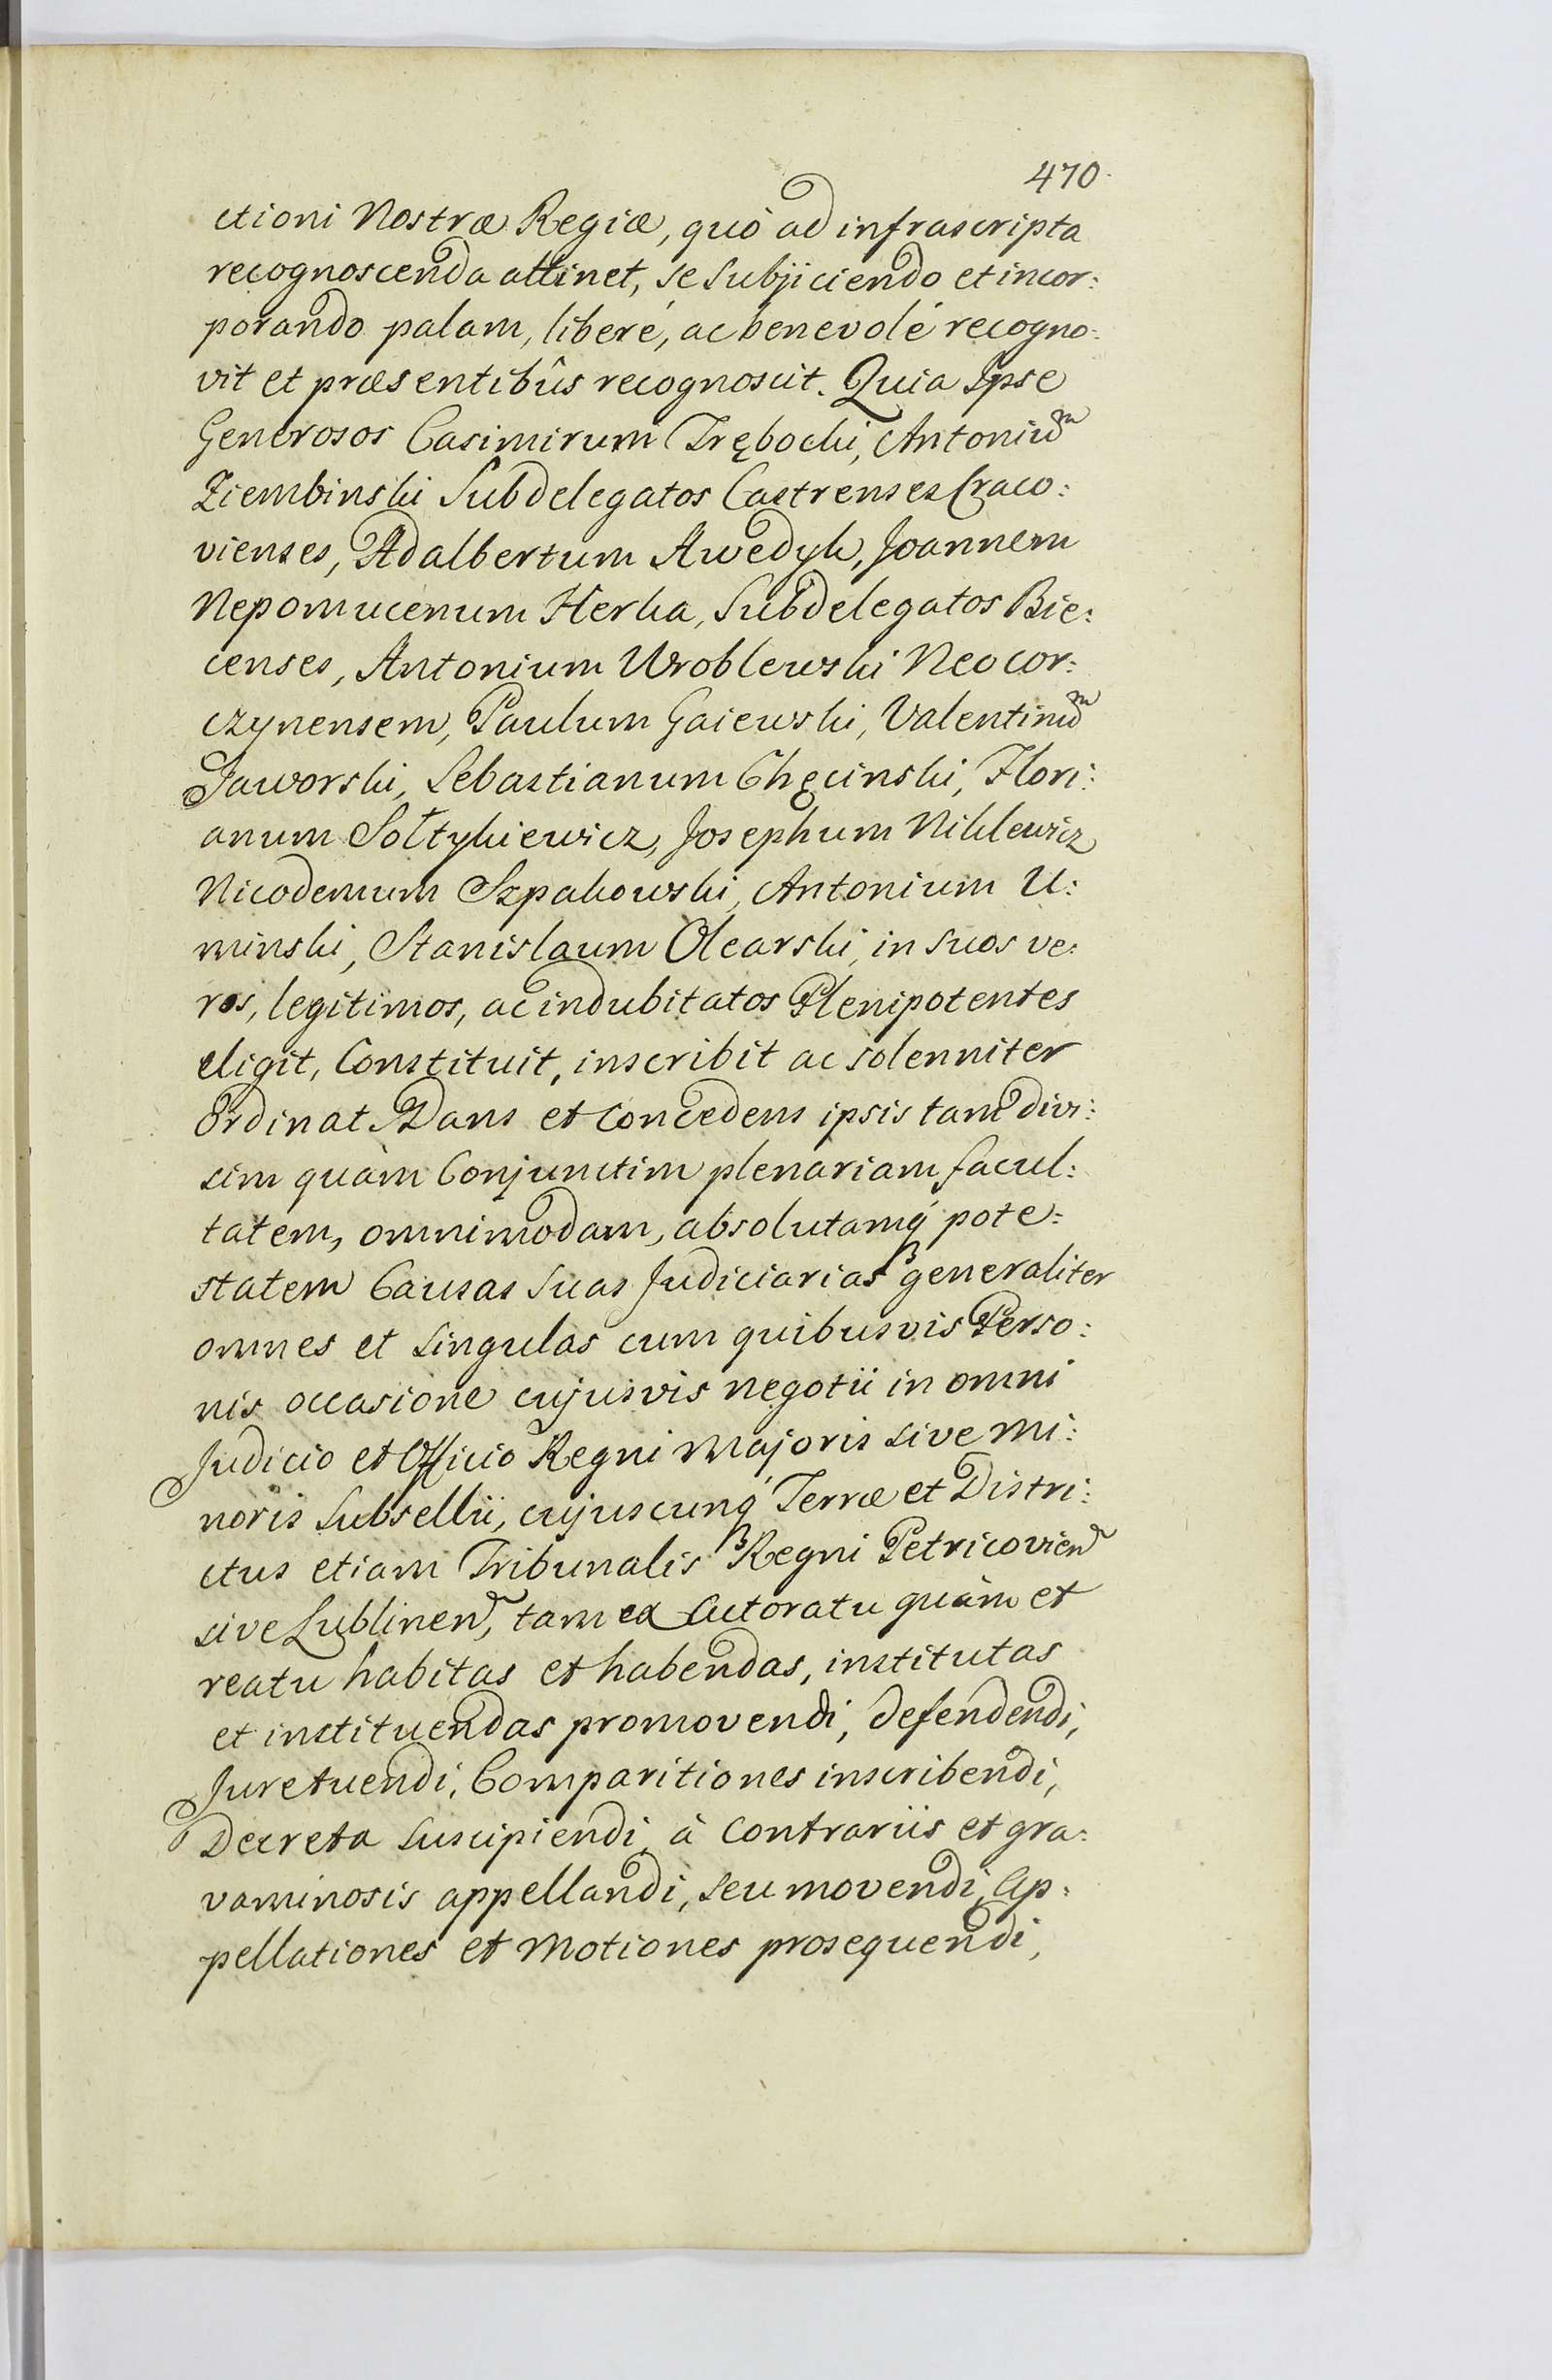 470.
ctioni Nostræ Regiæ, quò ad infrascripta
recognoscenda attinet, se subjiciendo et incor:
porando palam, liberé, ac benevolé recogno:
vit et præsentibûs recognoscit. Quia Ipse
Generosos Casimirum Trębocki, Antoniu᷑m
Ziembinski Subdelegatos Castrenses Craco:
vienses, Adalbertum Awedyk, Joannem
Nepomucenum Herka, Subdelegatos Bie:
censes, Antonium Wroblewski Neocor:
czynensem, Paulum Gaiewski, Valentinum
Jaworski, Sebastianum Chęcinski, Flori:
anum Sołtykiewicz, Josephum Niklewicz
Nicodemum Szpakowski, Antonium U:
minski, Stanislaum Olearski, in suos ve:
ros, legitimos, ac indubitatos Plenipotentes
eligit, Constituit, inscribit ac solenniter
Ordinat. Dans et Concedens ipsis tam divi:
sim quàm Conjunctim plenariam facul:
tatem, omnimodam, absolutamq́ pote:
statem Causas suas Judiciarias generaliter
omnes et singulas cum quibusvis Perso:
nis occasione cujusvis negotii in omni
Judicio et Officio Regni Majoris sive Mi:
noris Subsellii, cujuscunq́ Terræ et Distri:
ctus etiam Tribunalis Regni Petricovien
sive Lublinen, tam ex Actoratu quàm et
reatu habitas et habendas, institutas
et instituendas promovendi, defendendi,
Juretuendi, Comparitiones inscribendi,
Decreta suscipiendi, à Contrariis et gra:
vaminosis appellandi, seu movendi, Ap:
pellationes et Motiones prosequendi,